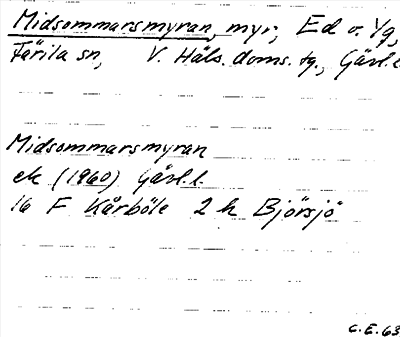 Midsommarsmyran, myr, Ed o. Yg,
Färila sn, V. Häls. doms. tg., Gävl.l
Midsommarsmyran
ek (1960) Gävl.l.
16 F Kårböle 2 h Björsjö
C.E.63